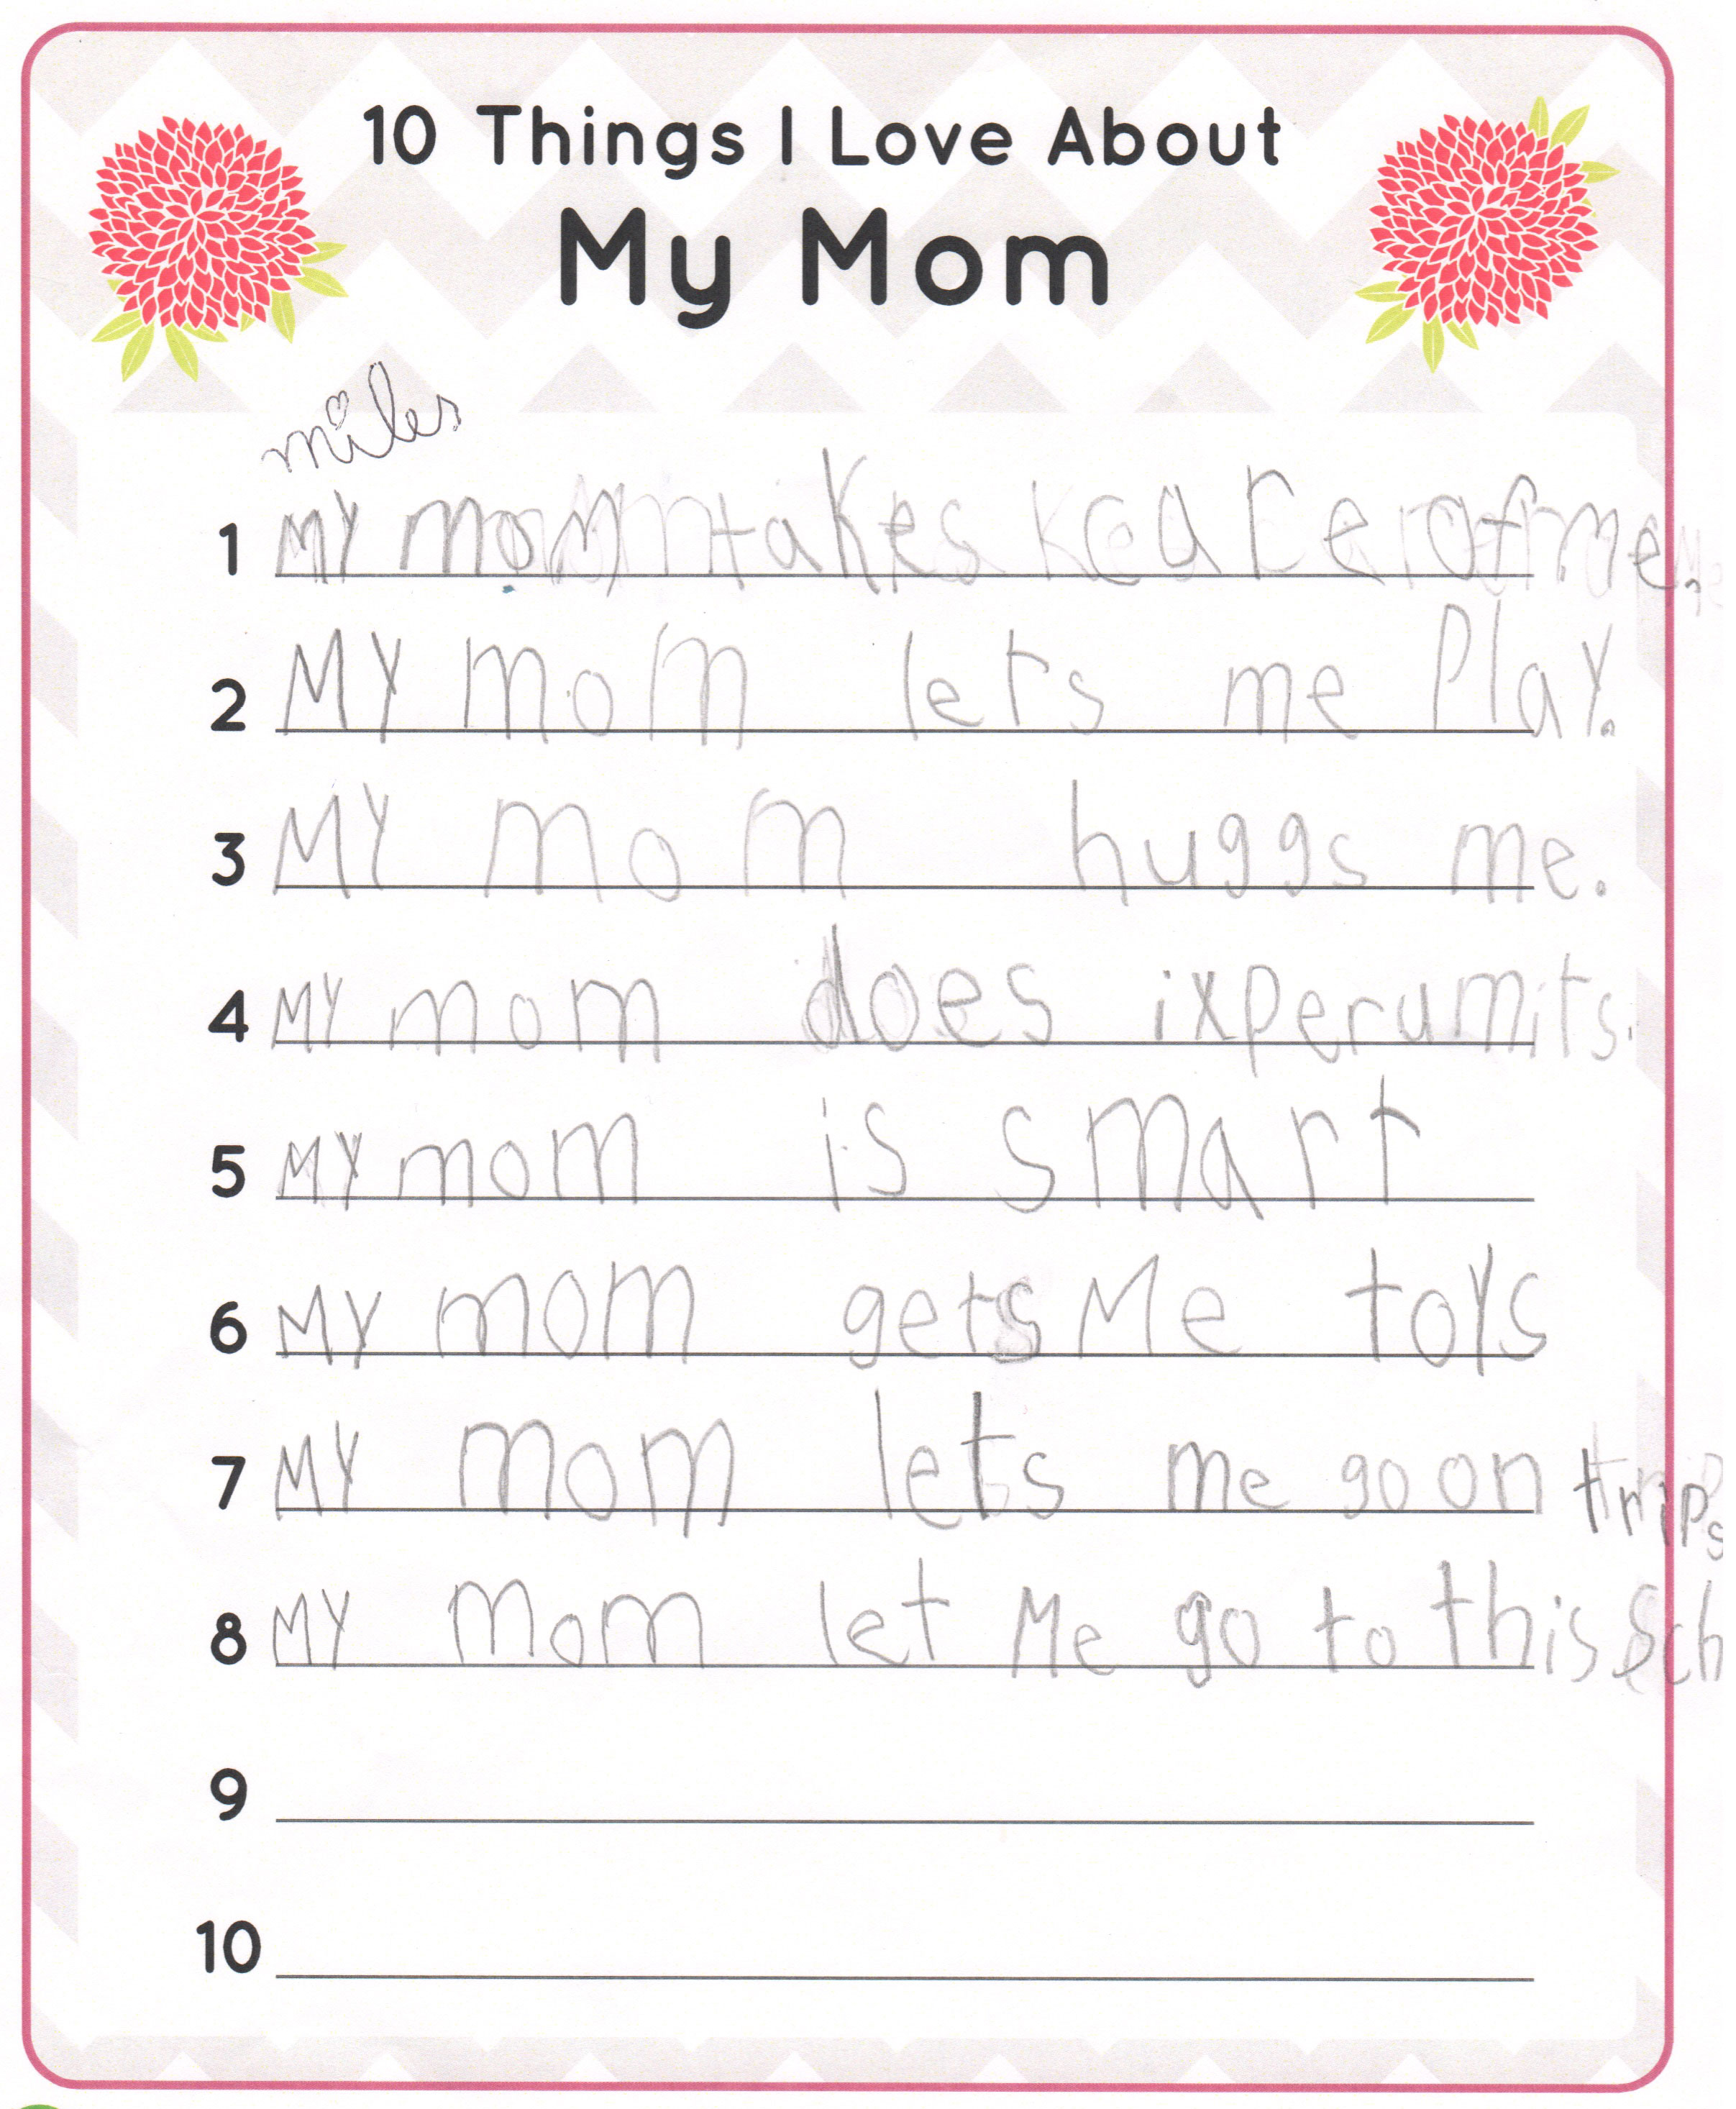 10 Things I Love About
My Mom
miles
1 MY mom takes care of me.
2 MY mom lets me Play.
3 MY mom huggs me.
4 MY mom does ixperumits.
5 MY mom is smart
6 MY mom gets Me toys
7 MY mom lets me go on trips
8 MY mom let Me go to this Sch
9
10